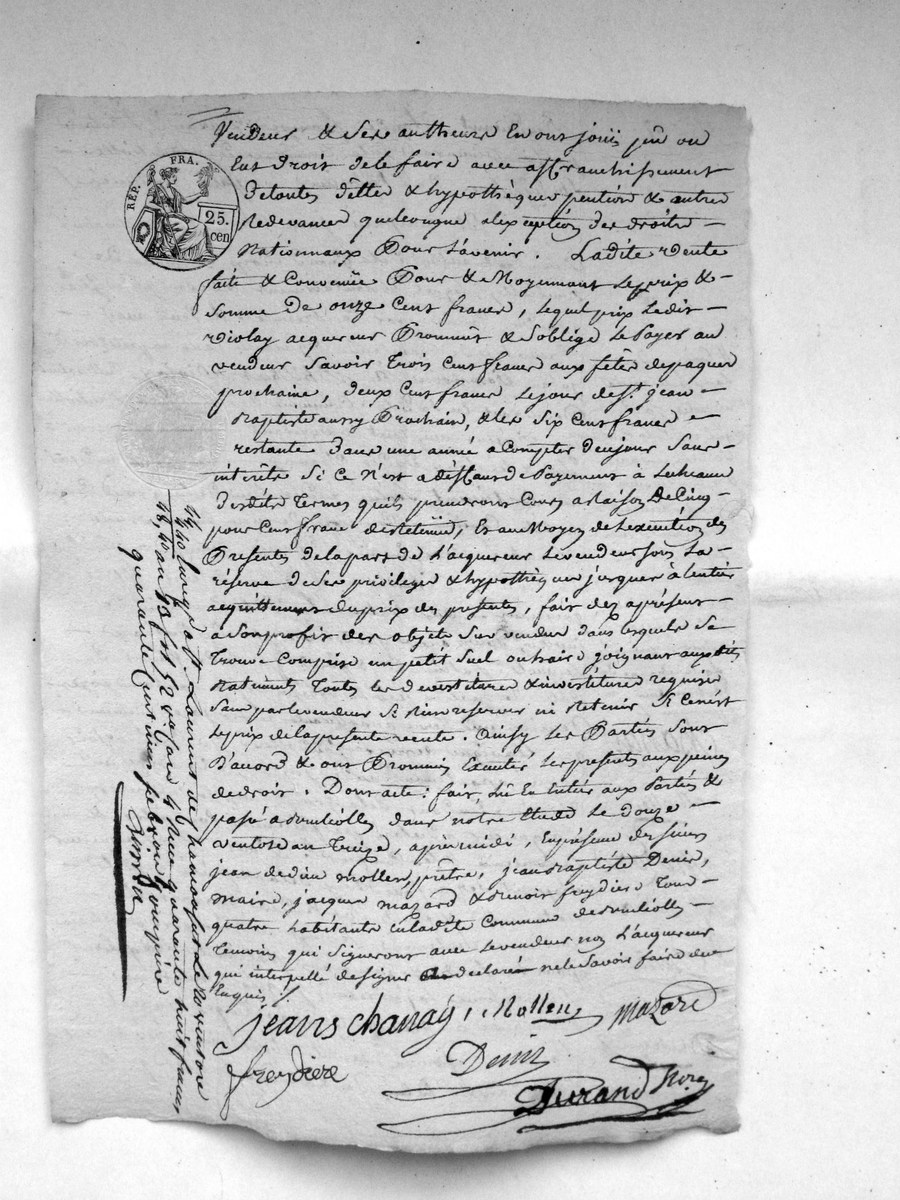 RÉP. FRA.
25. cen
Vendeur & ses autheurs En ont joüi pû ou
Eut droit de le faire avec affranchissement
de toutes dettes & hypothèques pention & autres
Redevances quelconque alexception des droits
Nationnaux Pour L'avenir. Ladite vente
faite & Convenüe Pour & Moyennant Le prix &
Somme De onze Cent francs, lequel prix Ledit
Violay acquereur Prommet & Soblige Le Payer au
vendeur Savoir Trois Cent francs aux fêtes de paques
prochaine, deux Cent francs Le jour de St. jean
Baptiste aussy Prochain, & les Six Cent francs
restants dans une année a Compter de ce jour Sans
interêts Si Ce N'est a déffaut de Payement à
desdits Termes quils prendront Cours a Raison De Cinq
pour Cent francs, Et au Moyen de Lexecution des
Presentes de la part de L'acquereur Le vendeur sous La
réserve de Ses privilegés & hypothèques jusques à l'entier
acquittement du prix des presentes, fait dez aprésent
a Son profit des objets Sus vendus dans lesquels Se
Trouve Comprise un petit Suel ou haire joignant auxdits
Batiments Toutes Les devestitures & investitures requises
Sans par le vendeur Si Rien reserver ni Retenir Si Cen'est
Le prix de la presente vente. Ainsy Les Parties Sont
D'accord & ont Prommis Executer Les presentes aux peines
de droit. Dont acte: fait, Lû En Entier aux Parties &
passé a dans notre Etude Le Douze
ventose an Treize, après midi, En présence des Sieurs
jean de dieu mollen, prêtre, jean Baptiste Denis,
maire, jacques mazard & Benoit freydiere Tous
quatre habitants en ladite Commune
Temoins qui Signeront avec Le vendeur non L'acquereur
qui interpellé de signer a declaré ne le Savoir faire de ce
Enquis /.
jeans chanay, Mollen, mazard
freydiere Denis
Durand Nore
44 Enregé a St. Laurent de chamousset Le 20 ventose
48, 40 an 13 quarante huit francs
quarante Centimes